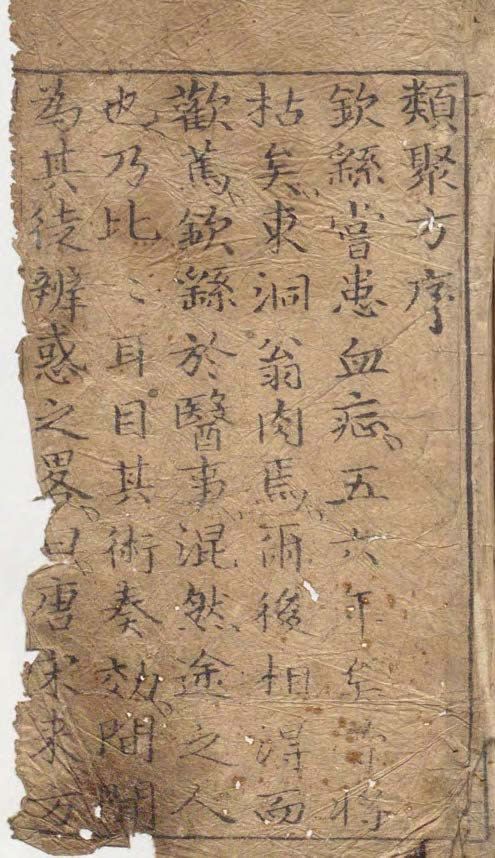 類聚方序
欽繇嘗患血症五六年矣將
枯矣東洞翁肉焉爾後相得而
歡焉欽繇於醫事混然途之人
也乃比〻耳目其術奏効間聞
為其徒辨惑之畧曰唐宋来方